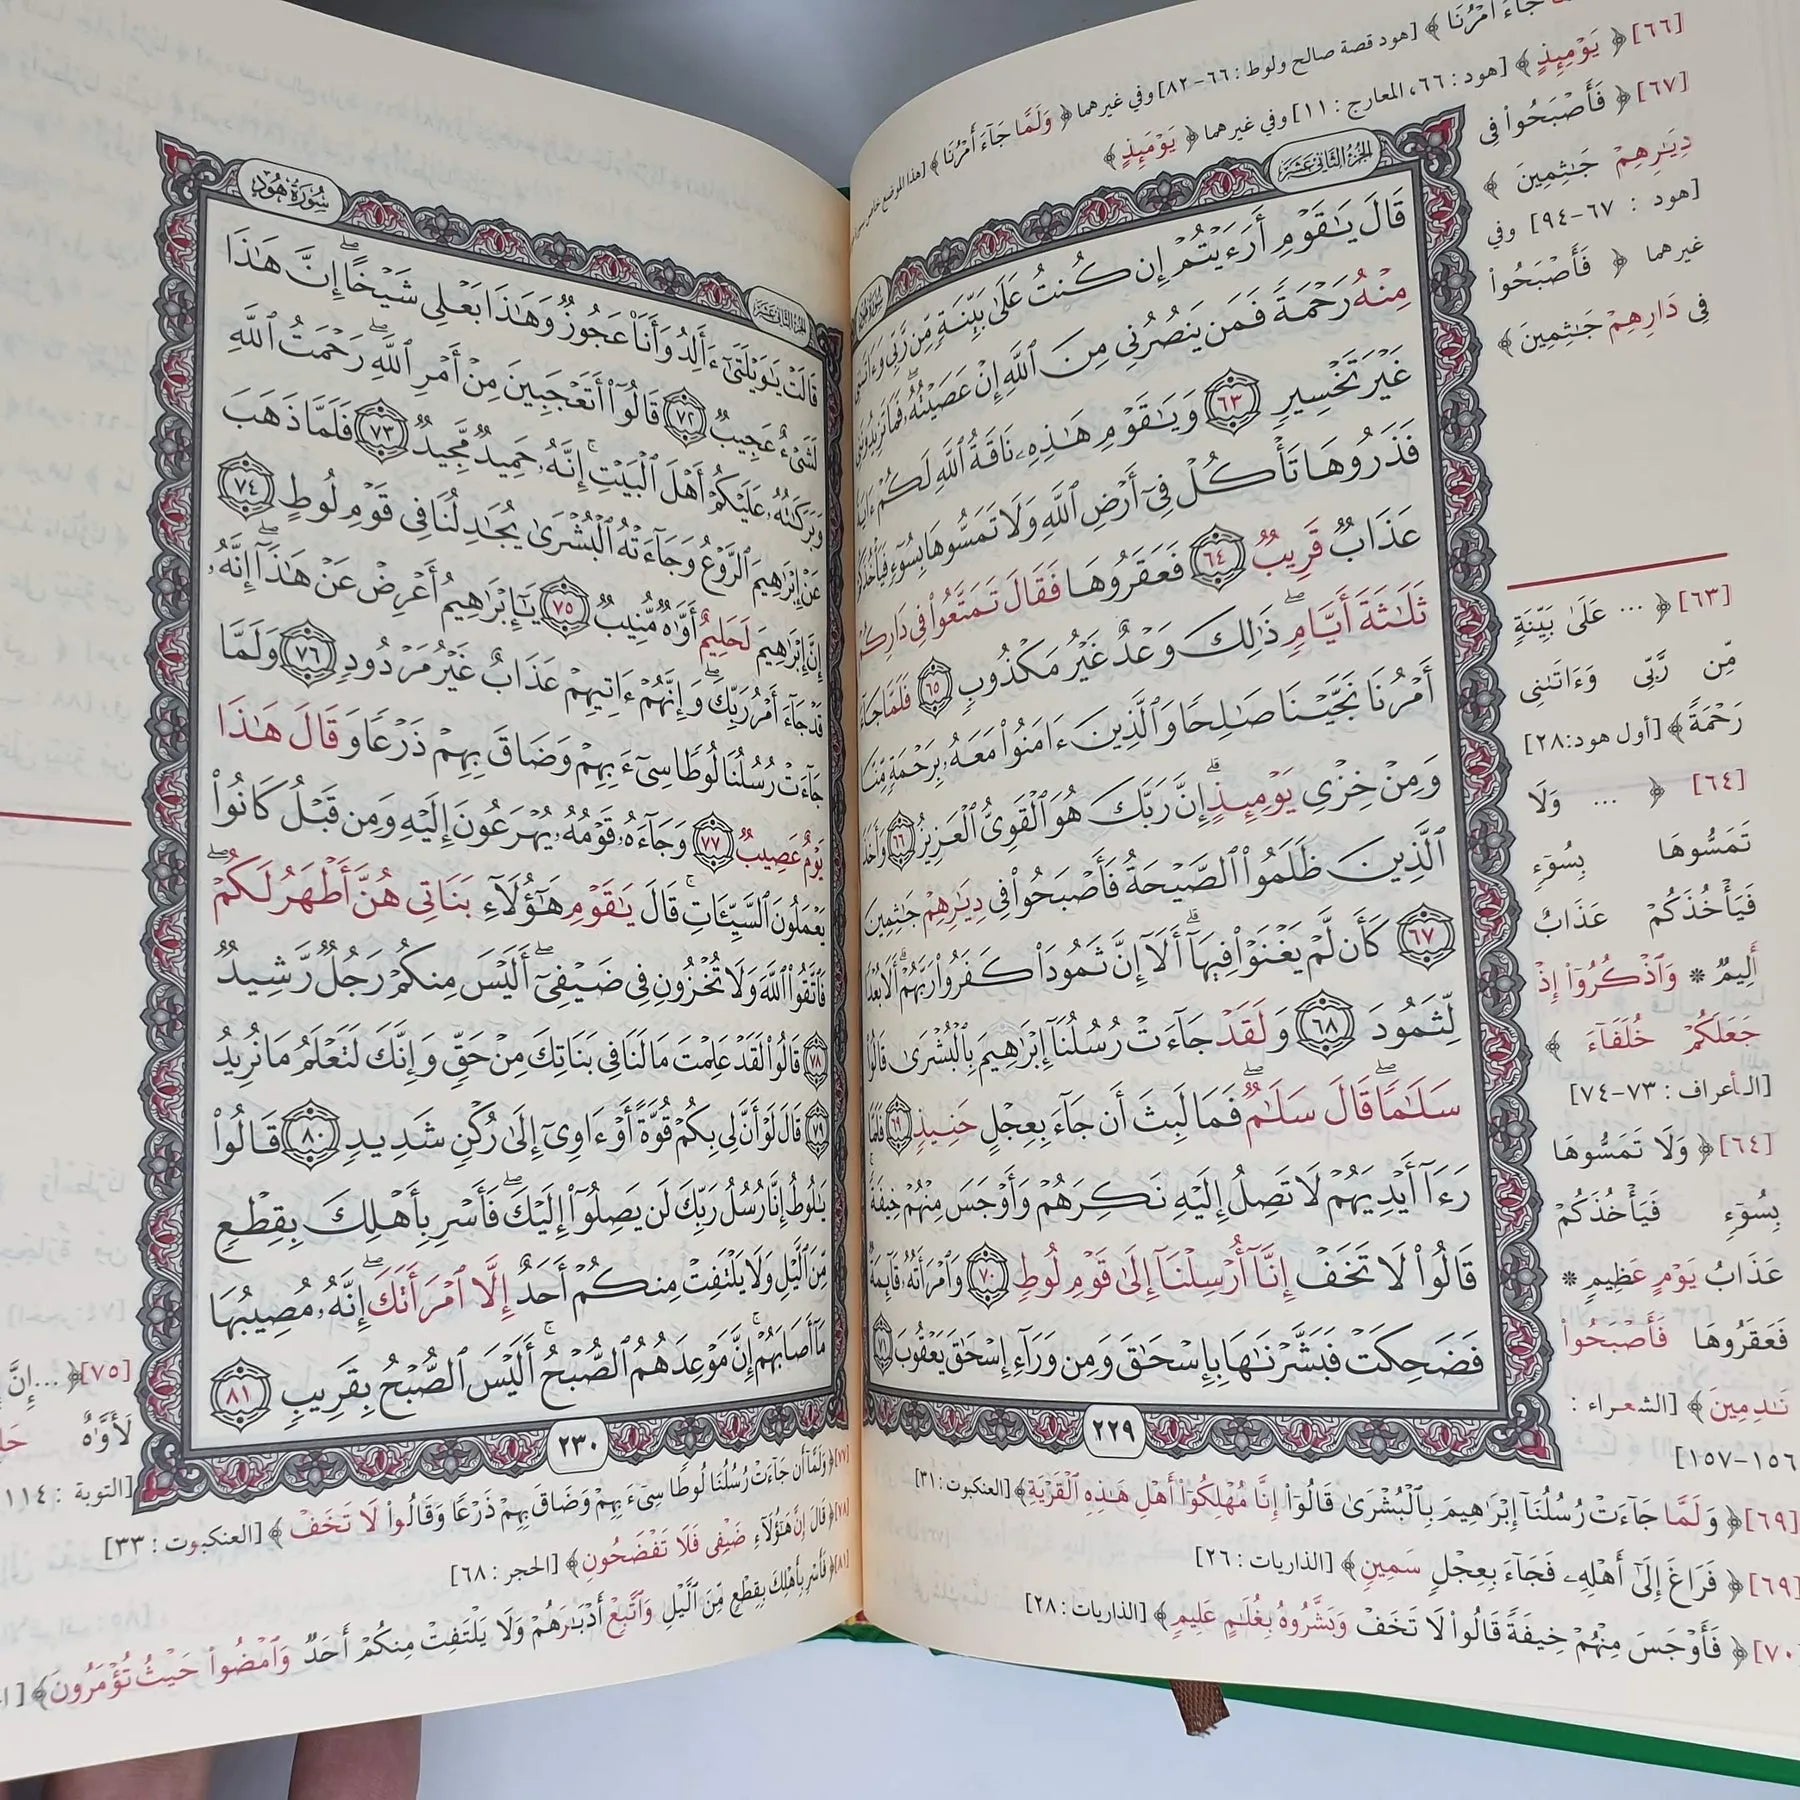 جَآءَ أَمْرُنَا ﴾ [هود قصة صالح ولوط : ٦٦-٨٢] وفي غيرهما ﴿ وَلَمَّا جَآءَ أَمْرُنَا ﴾
[٦٦] ﴿ يَوْمِئِذٍ ﴾ [هود : ٦٦، المعارج : ١١] وفي غيرهما ﴿ يَوْمَئِذٍ ﴾
[٦٧] ﴿ فَأَصْبَحُوا۟ فِى
دِيَـٰرِهِمْ جَـٰثِمِينَ ﴾
[هود : ٦٧-٩٤] وفي
غيرهما ﴿ فَأَصْبَحُوا۟
فِى دَارِهِمْ جَـٰثِمِينَ ﴾
الجزء الثاني عشر
قَالَ يَـٰقَوْمِ أَرَءَيْتُمْ إِن كُنتُ عَلَىٰ بَيِّنَةٍ مِّن رَّبِّى وَءَاتَىٰنِى
مِنْهُ رَحْمَةً فَمَن يَنصُرُنِى مِنَ ٱللَّهِ إِنْ عَصَيْتُهُۥ ۖ فَمَا تَزِيدُونَنِى
غَيْرَ تَخْسِيرٍ ٦٣ وَيَـٰقَوْمِ هَـٰذِهِۦ نَاقَةُ ٱللَّهِ لَكُمْ ءَايَةً
فَذَرُوهَا تَأْكُلْ فِىٓ أَرْضِ ٱللَّهِ وَلَا تَمَسُّوهَا بِسُوٓءٍ فَيَأْخُذَكُمْ
عَذَابٌ قَرِيبٌ ٦٤ فَعَقَرُوهَا فَقَالَ تَمَتَّعُوا۟ فِى دَارِكُمْ
ثَلَـٰثَةَ أَيَّامٍ ۖ ذَٰلِكَ وَعْدٌ غَيْرُ مَكْذُوبٍ ٦٥ فَلَمَّا جَآءَ
أَمْرُنَا نَجَّيْنَا صَـٰلِحًا وَٱلَّذِينَ ءَامَنُوا۟ مَعَهُۥ بِرَحْمَةٍ مِّنَّا
وَمِنْ خِزْىِ يَوْمِئِذٍ ۗ إِنَّ رَبَّكَ هُوَ ٱلْقَوِىُّ ٱلْعَزِيزُ ٦٦ وَأَخَذَ
ٱلَّذِينَ ظَلَمُوا۟ ٱلصَّيْحَةُ فَأَصْبَحُوا۟ فِى دِيَـٰرِهِمْ جَـٰثِمِينَ
٦٧ كَأَن لَّمْ يَغْنَوْا۟ فِيهَآ ۗ أَلَآ إِنَّ ثَمُودَا۟ كَفَرُوا۟ رَبَّهُمْ ۗ أَلَا بُعْدًا
لِّثَمُودَ ٦٨ وَلَقَدْ جَآءَتْ رُسُلُنَآ إِبْرَٰهِيمَ بِٱلْبُشْرَىٰ قَالُوا۟
سَلَـٰمًا ۖ قَالَ سَلَـٰمٌ ۖ فَمَا لَبِثَ أَن جَآءَ بِعِجْلٍ حَنِيذٍ ٦٩ فَلَمَّا
رَءَآ أَيْدِيَهُمْ لَا تَصِلُ إِلَيْهِ نَكِرَهُمْ وَأَوْجَسَ مِنْهُمْ خِيفَةً ۚ
قَالُوا۟ لَا تَخَفْ إِنَّآ أُرْسِلْنَآ إِلَىٰ قَوْمِ لُوطٍ ٧٠ وَٱمْرَأَتُهُۥ قَآئِمَةٌ
فَضَحِكَتْ فَبَشَّرْنَـٰهَا بِإِسْحَـٰقَ وَمِن وَرَآءِ إِسْحَـٰقَ يَعْقُوبَ ٧١
٢٢٩
[٦٣] ﴿ ... عَلَىٰ بَيِّنَةٍ
مِّن رَّبِّى وَءَاتَىٰنِى
رَحْمَةً ﴾ [أول هود:٢٨]
[٦٤] ﴿ ... وَلَا
تَمَسُّوهَا بِسُوٓءٍ
فَيَأْخُذَكُمْ عَذَابٌ
أَلِيمٌ * وَٱذْكُرُوٓا۟ إِذْ
جَعَلَكُمْ خُلَفَآءَ ﴾
[الأعراف : ٧٣-٧٤]
[٦٤] ﴿ وَلَا تَمَسُّوهَا
بِسُوٓءٍ فَيَأْخُذَكُمْ
عَذَابُ يَوْمٍ عَظِيمٍ *
فَعَقَرُوهَا فَأَصْبَحُوا۟
نَـٰدِمِينَ ﴾ [الشعراء :
١٥٦-١٥٧]
[٦٩] ﴿ وَلَمَّا جَآءَتْ رُسُلُنَآ إِبْرَٰهِيمَ بِٱلْبُشْرَىٰ قَالُوٓا۟ إِنَّا مُهْلِكُوٓا۟ أَهْلِ هَـٰذِهِ ٱلْقَرْيَةِ ﴾ [العنكبوت : ٣١]
[٦٩] ﴿ فَرَاغَ إِلَىٰٓ أَهْلِهِۦ فَجَآءَ بِعِجْلٍ سَمِينٍ ﴾ [الذاريات : ٢٦]
[٧٠] ﴿ فَأَوْجَسَ مِنْهُمْ خِيفَةً قَالُوا۟ لَا تَخَفْ وَبَشَّرُوهُ بِغُلَـٰمٍ عَلِيمٍ ﴾ [الذاريات : ٢٨]
سورة هود
الجزء الثاني عشر
قَالَتْ يَـٰوَيْلَتَىٰٓ ءَأَلِدُ وَأَنَا۠ عَجُوزٌ وَهَـٰذَا بَعْلِى شَيْخًا ۖ إِنَّ هَـٰذَا
لَشَىْءٌ عَجِيبٌ ٧٢ قَالُوٓا۟ أَتَعْجَبِينَ مِنْ أَمْرِ ٱللَّهِ ۖ رَحْمَتُ ٱللَّهِ
وَبَرَكَـٰتُهُۥ عَلَيْكُمْ أَهْلَ ٱلْبَيْتِ ۚ إِنَّهُۥ حَمِيدٌ مَّجِيدٌ ٧٣ فَلَمَّا ذَهَبَ
عَنْ إِبْرَٰهِيمَ ٱلرَّوْعُ وَجَآءَتْهُ ٱلْبُشْرَىٰ يُجَـٰدِلُنَا فِى قَوْمِ لُوطٍ ٧٤
إِنَّ إِبْرَٰهِيمَ لَحَلِيمٌ أَوَّٰهٌ مُّنِيبٌ ٧٥ يَـٰٓإِبْرَٰهِيمُ أَعْرِضْ عَنْ هَـٰذَآ ۖ إِنَّهُۥ
قَدْ جَآءَ أَمْرُ رَبِّكَ ۖ وَإِنَّهُمْ ءَاتِيهِمْ عَذَابٌ غَيْرُ مَرْدُودٍ ٧٦ وَلَمَّا
جَآءَتْ رُسُلُنَا لُوطًا سِىٓءَ بِهِمْ وَضَاقَ بِهِمْ ذَرْعًا وَقَالَ هَـٰذَا
يَوْمٌ عَصِيبٌ ٧٧ وَجَآءَهُۥ قَوْمُهُۥ يُهْرَعُونَ إِلَيْهِ وَمِن قَبْلُ كَانُوا۟
يَعْمَلُونَ ٱلسَّيِّـَٔاتِ ۚ قَالَ يَـٰقَوْمِ هَـٰٓؤُلَآءِ بَنَاتِى هُنَّ أَطْهَرُ لَكُمْ ۖ
فَٱتَّقُوا۟ ٱللَّهَ وَلَا تُخْزُونِ فِى ضَيْفِىٓ ۖ أَلَيْسَ مِنكُمْ رَجُلٌ رَّشِيدٌ
٧٨ قَالُوا۟ لَقَدْ عَلِمْتَ مَا لَنَا فِى بَنَاتِكَ مِنْ حَقٍّ وَإِنَّكَ لَتَعْلَمُ مَا نُرِيدُ
٧٩ قَالَ لَوْ أَنَّ لِى بِكُمْ قُوَّةً أَوْ ءَاوِىٓ إِلَىٰ رُكْنٍ شَدِيدٍ ٨٠ قَالُوا۟
يَـٰلُوطُ إِنَّا رُسُلُ رَبِّكَ لَن يَصِلُوٓا۟ إِلَيْكَ ۖ فَأَسْرِ بِأَهْلِكَ بِقِطْعٍ
مِّنَ ٱلَّيْلِ وَلَا يَلْتَفِتْ مِنكُمْ أَحَدٌ إِلَّا ٱمْرَأَتَكَ ۖ إِنَّهُۥ مُصِيبُهَا
مَآ أَصَابَهُمْ ۚ إِنَّ مَوْعِدَهُمُ ٱلصُّبْحُ ۚ أَلَيْسَ ٱلصُّبْحُ بِقَرِيبٍ ٨١
٢٣٠
[٧٥] ﴿ ... إِنَّ
لَأَوَّٰهٌ
[التوبة : ١١٤
[٧٧] ﴿ وَلَمَّآ أَن جَآءَتْ رُسُلُنَا لُوطًا سِىٓءَ بِهِمْ وَضَاقَ بِهِمْ ذَرْعًا وَقَالُوا۟ لَا تَخَفْ ﴾ [العنكبوت : ٣٣]
[٧٨] ﴿ قَالَ إِنَّ هَـٰٓؤُلَآءِ ضَيْفِى فَلَا تَفْضَحُونِ ﴾ [الحجر : ٦٨]
[٨١] ﴿ فَأَسْرِ بِأَهْلِكَ بِقِطْعٍ مِّنَ ٱلَّيْلِ وَٱتَّبِعْ أَدْبَـٰرَهُمْ وَلَا يَلْتَفِتْ مِنكُمْ أَحَدٌ وَٱمْضُوا۟ حَيْثُ تُؤْمَرُونَ ﴾